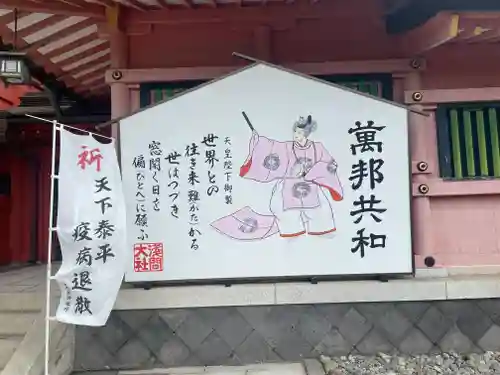 萬邦共和
天皇陛下御製
世界との
往き来難(かた)かる
世はつづき
窓開く日を
偏(ひとへ)に願ふ
浅間
大社
祈
天下泰平
疫病退散